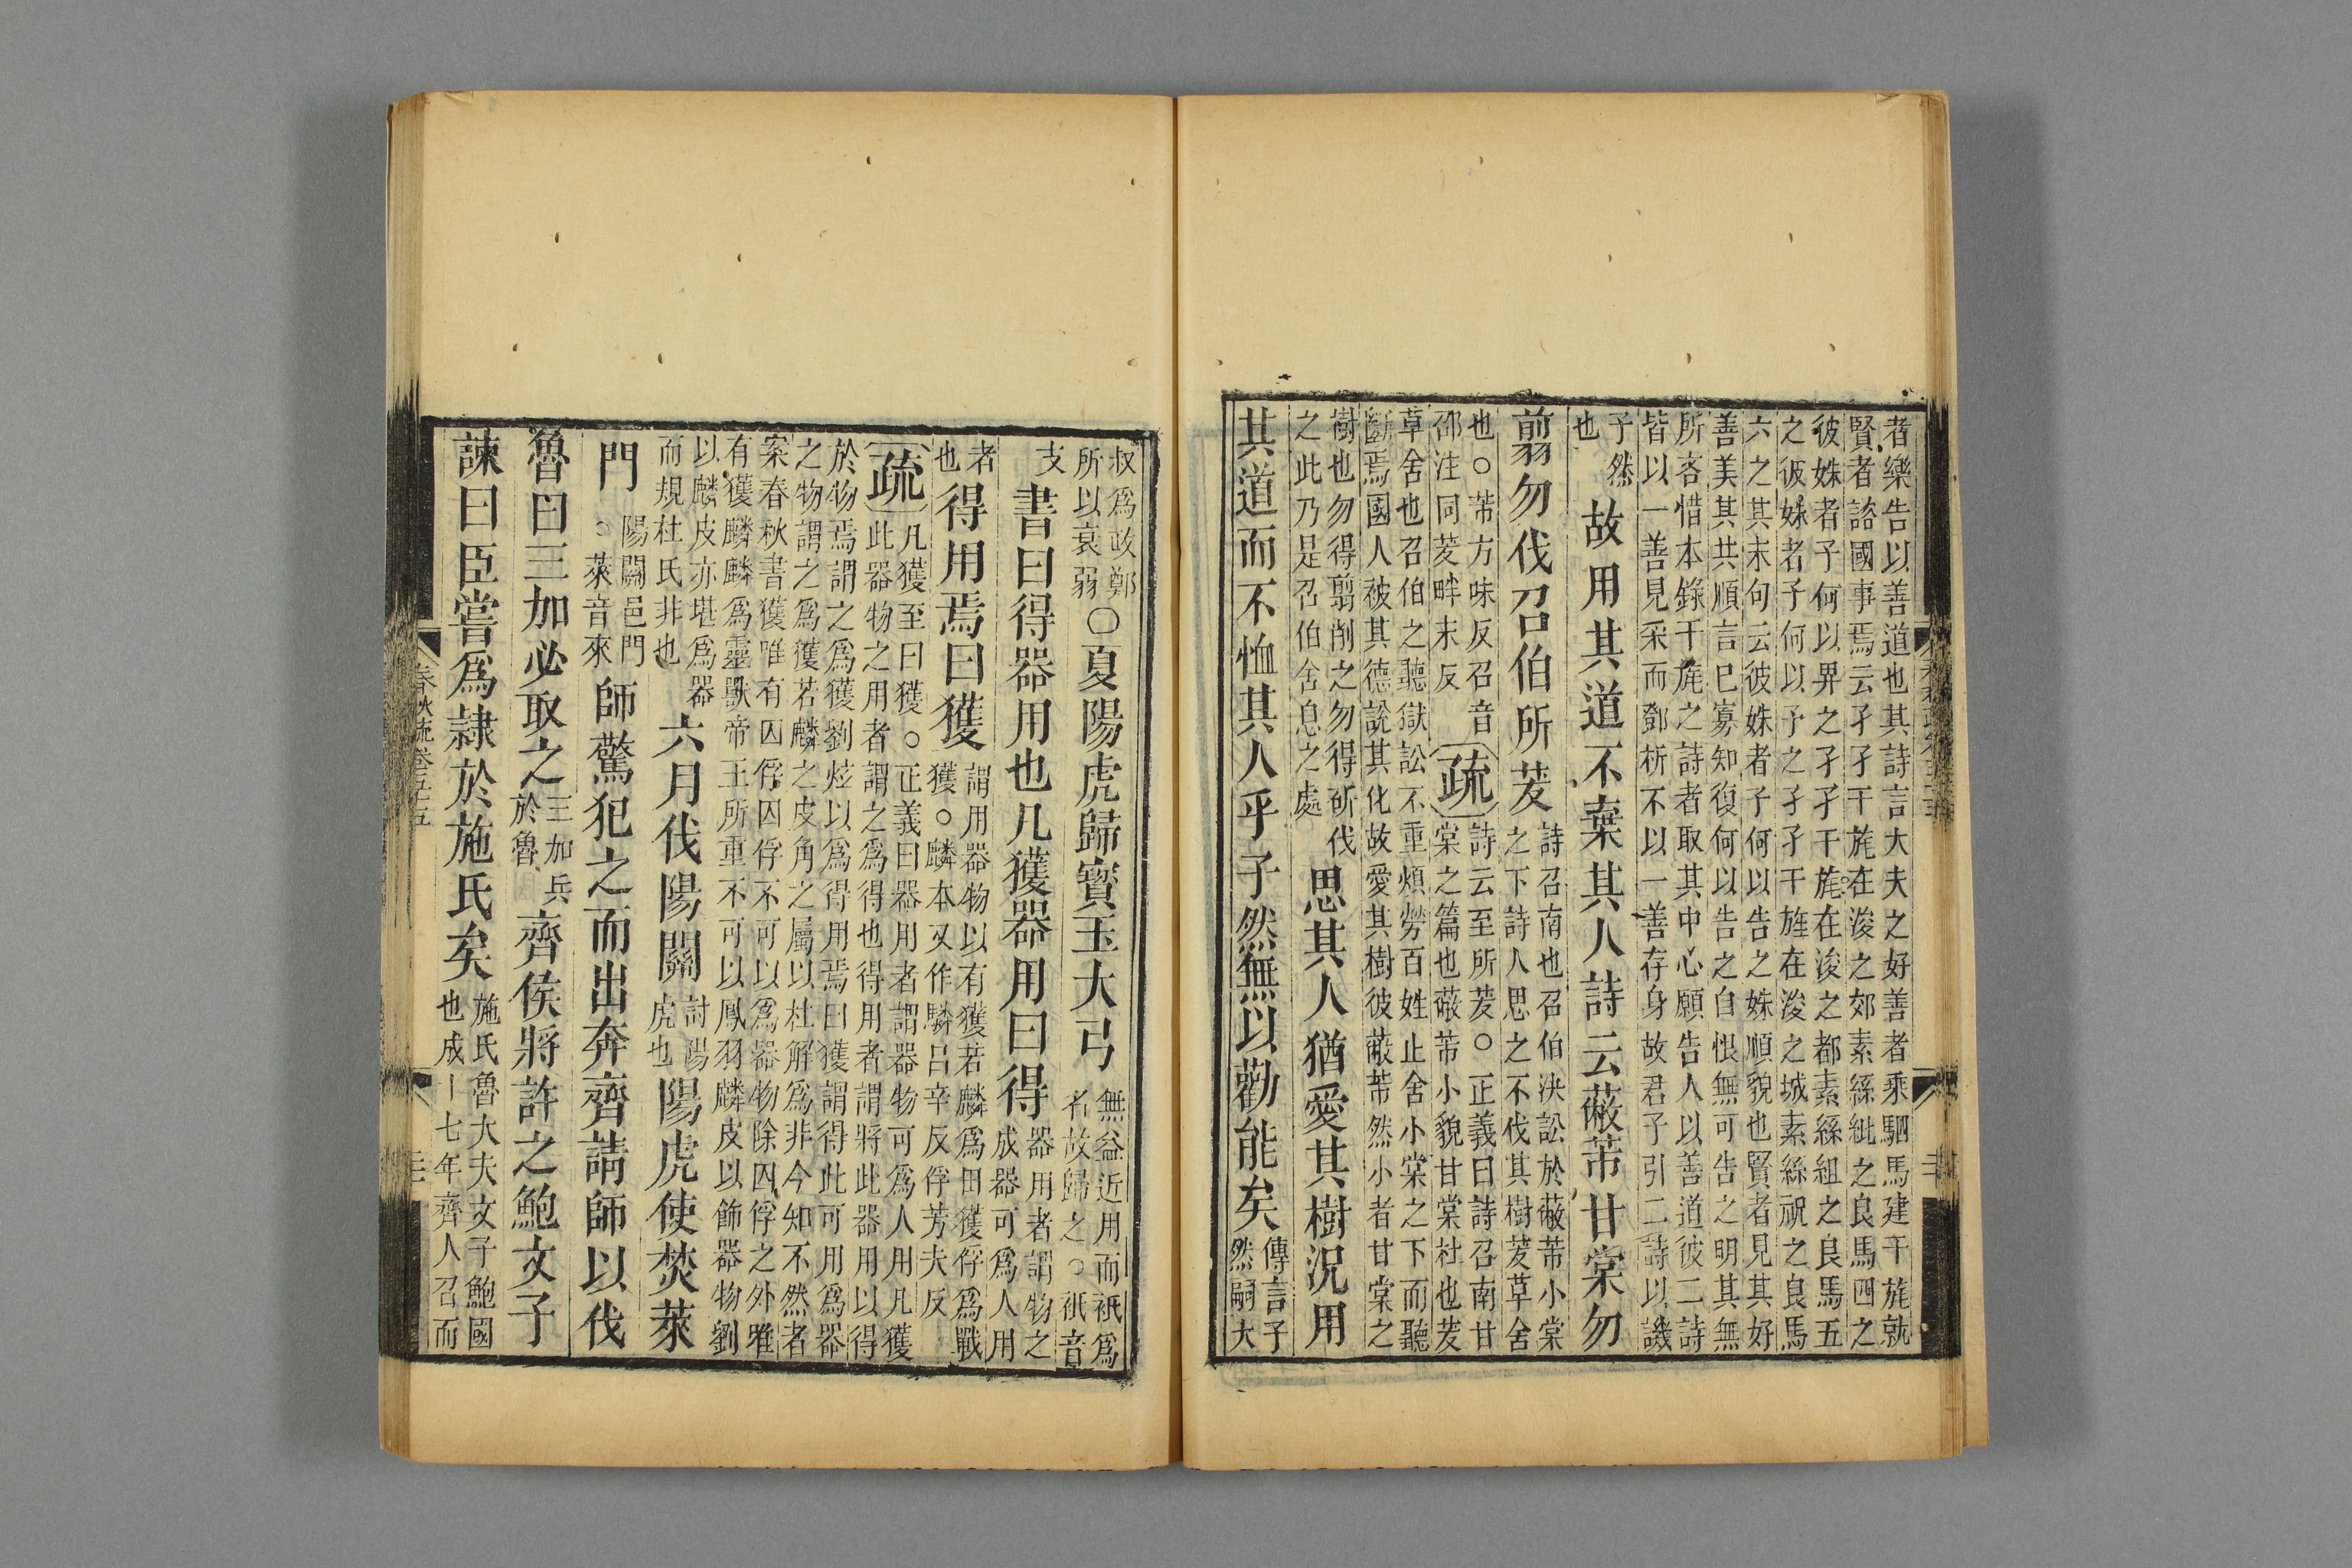 者樂告以善道也其詩言大夫之好善者乘駟馬建干旄就
賢者諮國事焉云孑孑干旄在浚之郊素絲紕之良馬四之
彼姝者子何以畀之孑孑干旄在浚之都素絲組之良馬五
之彼姝者子何以予之孑孑干旌在浚之城素絲祝之良馬
六之其末句云彼姝者子何以告之姝順貌也賢者見其好
善美其共順言已寡知復何以告之自恨無可告之明其無
所吝惜本錄干旄之詩者取其中心願告人以善道彼二詩
皆以一善見采而鄧析不以一善存身故君子引二詩以譏
子然
也
故用其道不棄其人詩云蔽芾甘棠勿
翦勿伐召伯所茇
詩召南也召伯決訟於蔽芾小棠
之下詩人思之不伐其樹茇草舍
也○芾方味反召音
邵注同茇畔末反
疏
詩云至所茇○正義曰詩召南甘
棠之篇也蔽芾小貌甘棠杜也茇
草舍也召伯之聽獄訟不重煩勞百姓止舍小棠之下而聽
斷焉國人被其德說其化故愛其樹彼蔽芾然小者甘棠之
樹也勿得翦削之勿得斫伐
之此乃是召伯舍息之處
思其人猶愛其樹況用
其道而不恤其人乎子然無以勸能矣
傳言子
然嗣大
叔爲政鄭
所以衰弱
○夏陽虎歸寳玉大弓
無益近用而祇爲
名故歸之○祇音
支
書曰得器用也凡獲器用曰得
器用者謂物之
成器可爲人用
者
也
得用焉曰獲
謂用器物以有獲若麟爲田獲俘爲戰
獲○麟本又作驎吕辛反俘芳夫反
疏
凡獲至曰獲○正義曰器用者謂器物可爲人用凡獲
此器物之用者謂之爲得也得用者謂將此器用以得
於物焉謂之爲獲劉炫以爲得用焉曰獲謂得此可用爲器
之物謂之爲獲若麟之皮角之屬以杜解爲非今知不然者
案春秋書獲唯有囚俘囚俘不可以爲器物除囚俘之外雖
有獲麟麟爲靈獸帝王所重不可以鳳羽麟皮以飾器物劉
以麟皮亦堪爲器
而規杜氏非也
六月伐陽關
討陽
虎也
陽虎使焚萊
門
陽關邑門
○萊音來
師驚犯之而出奔齊請師以伐
魯曰三加必取之
三加兵
於魯
齊侯將許之鮑文子
諫曰臣嘗爲隷於施氏矣
施氏魯大夫文子鮑國
也成十七年齊人召而
春秋疏卷五十五